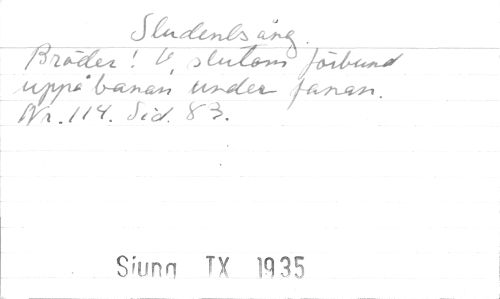 Studentsång.
Bröder! V, slutom förbund
uppå banan under fanan.
Nr. 114. Sid. 83.
Sjung IX 1935